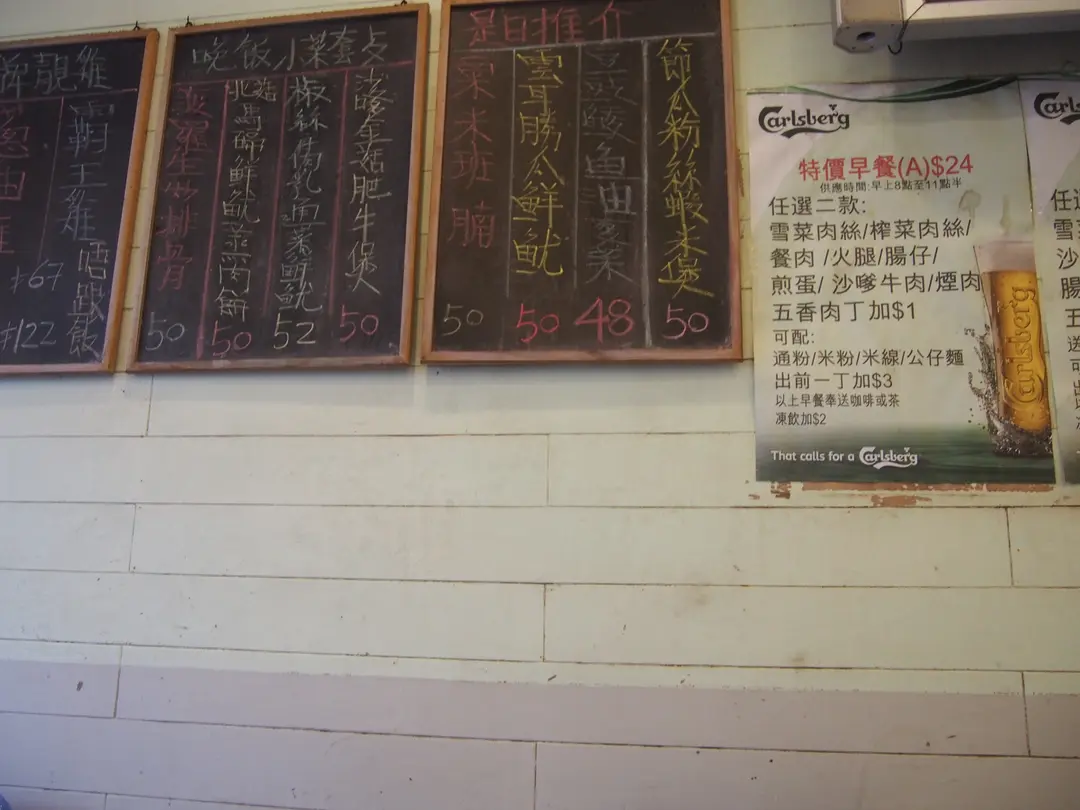 牌靚雞
霸王雞
唔跟飯
葱油雞
$67
$122
晚飯小菜套点
沙嗲金菇肥牛煲
50
椒絲腐乳通菜鮮魷
52
北菇馬蹄鮮魷蒸肉餅
50
菠蘿生炒排骨
50
是日推介
節瓜粉絲蝦米煲
50
豆豉鯪魚油麥菜
48
雲耳勝瓜鮮魷
50
粟米班腩
50
Carlsberg
特價早餐(A)$24
供應時間:早上8點至11點半
任選二款:
雪菜肉絲/榨菜肉絲/
餐肉 /火腿/腸仔/
煎蛋/ 沙嗲牛肉/煙肉
五香肉丁加$1
可配:
通粉/米粉/米線/公仔麵
出前一丁加$3
以上早餐奉送咖啡或茶
凍飲加$2
That calls for a Carlsberg
Carlsberg